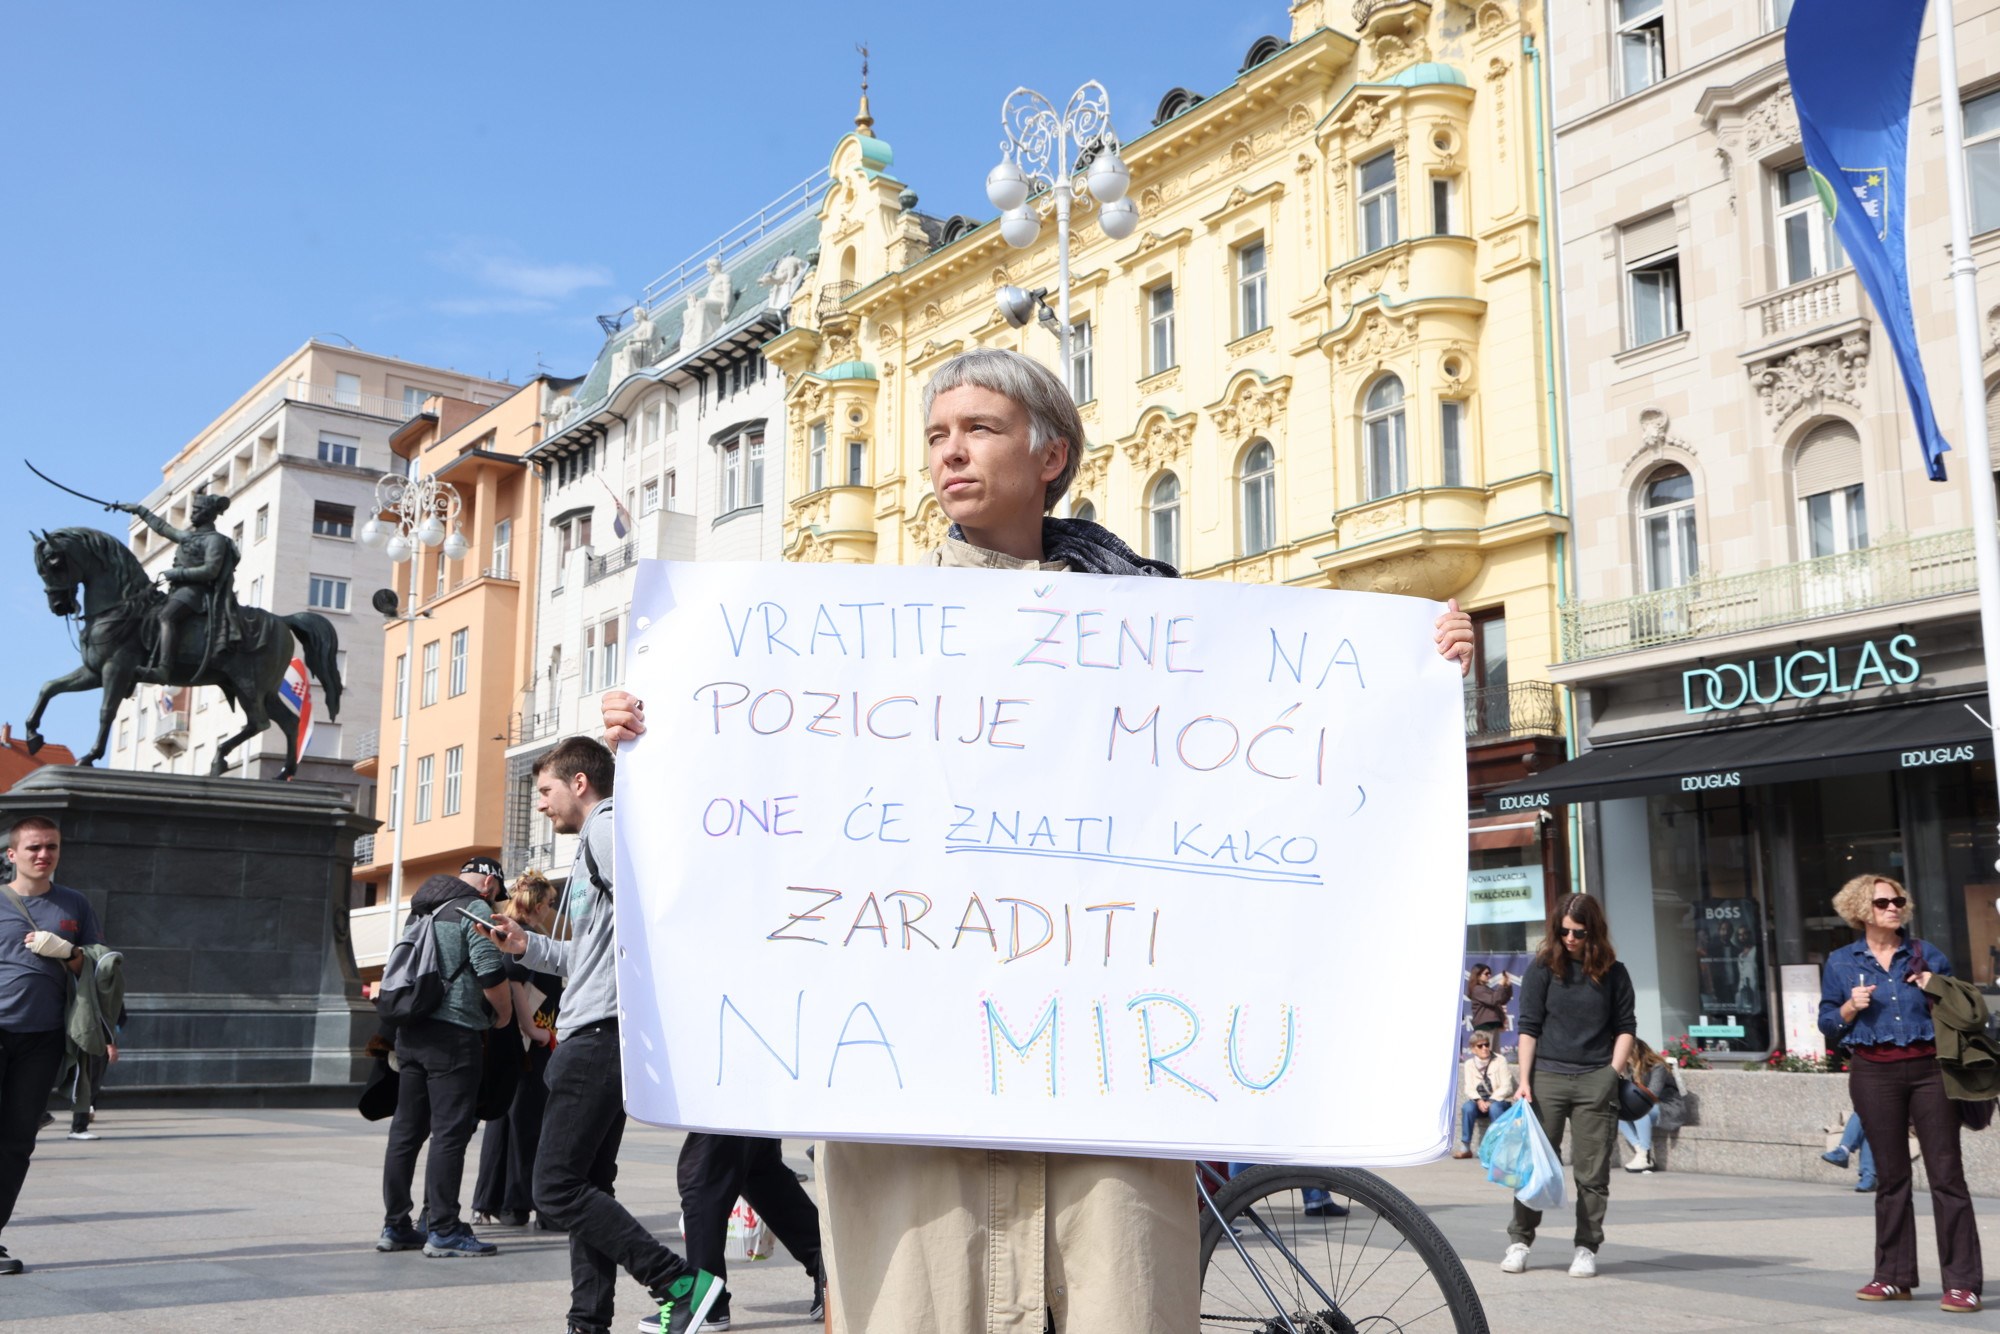 VRATITE ŽENE NA
POZICIJE MOĆI,
ONE ĆE ZNATI KAKO
ZARADITI
NA MIRU
DOUGLAS
DOUGLAS
DOUGLAS
DOUGLAS
NOVA LOKACIJA
TKALČIĆEVA 4
BOSS